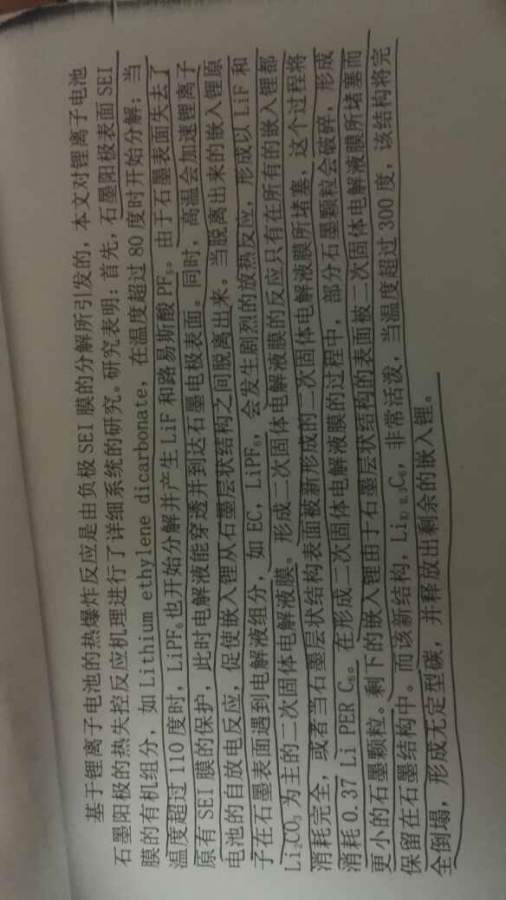 基于锂离子电池的热爆炸反应是由负极 SEI 膜的分解所引发的，本文对锂离子电池
石墨阳极的热失控反应机理进行了详细系统的研究。研究表明：首先，石墨阳极表面 SEI
膜的有机组分，如 Lithium ethylene dicarbonate，在温度超过 80 度时开始分解；当
温度超过 110 度时，LiPF₆也开始分解并产生 LiF 和路易斯酸 PF₅。由于石墨表面失去了
原有 SEI 膜的保护，此时电解液能穿透并到达石墨电极表面。同时，高温会加速锂离子
电池的自放电反应，促使嵌入锂从石墨层状结构之间脱离出来。当脱离出来的嵌入锂原
子在石墨表面遇到电解液组分，如 EC，LiPF₆，会发生剧烈的放热反应，形成以 LiF 和
Li₂CO₃ 为主的二次固体电解液膜。形成二次固体电解液膜的反应只有在所有的嵌入锂都
消耗完全，或者当石墨层状结构表面被新形成的二次固体电解液膜所堵塞，这个过程将
消耗 0.37 Li PER C₆。在形成二次固体电解液膜的过程中，部分石墨颗粒会破碎，形成
更小的石墨颗粒。剩下的嵌入锂由于石墨层状结构的表面被二次固体电解液膜所堵塞而
保留在石墨结构中。而该新结构，非常活泼，当温度超过 300 度，该结构将完
全倒塌，形成无定型碳，并释放出剩余的嵌入锂。